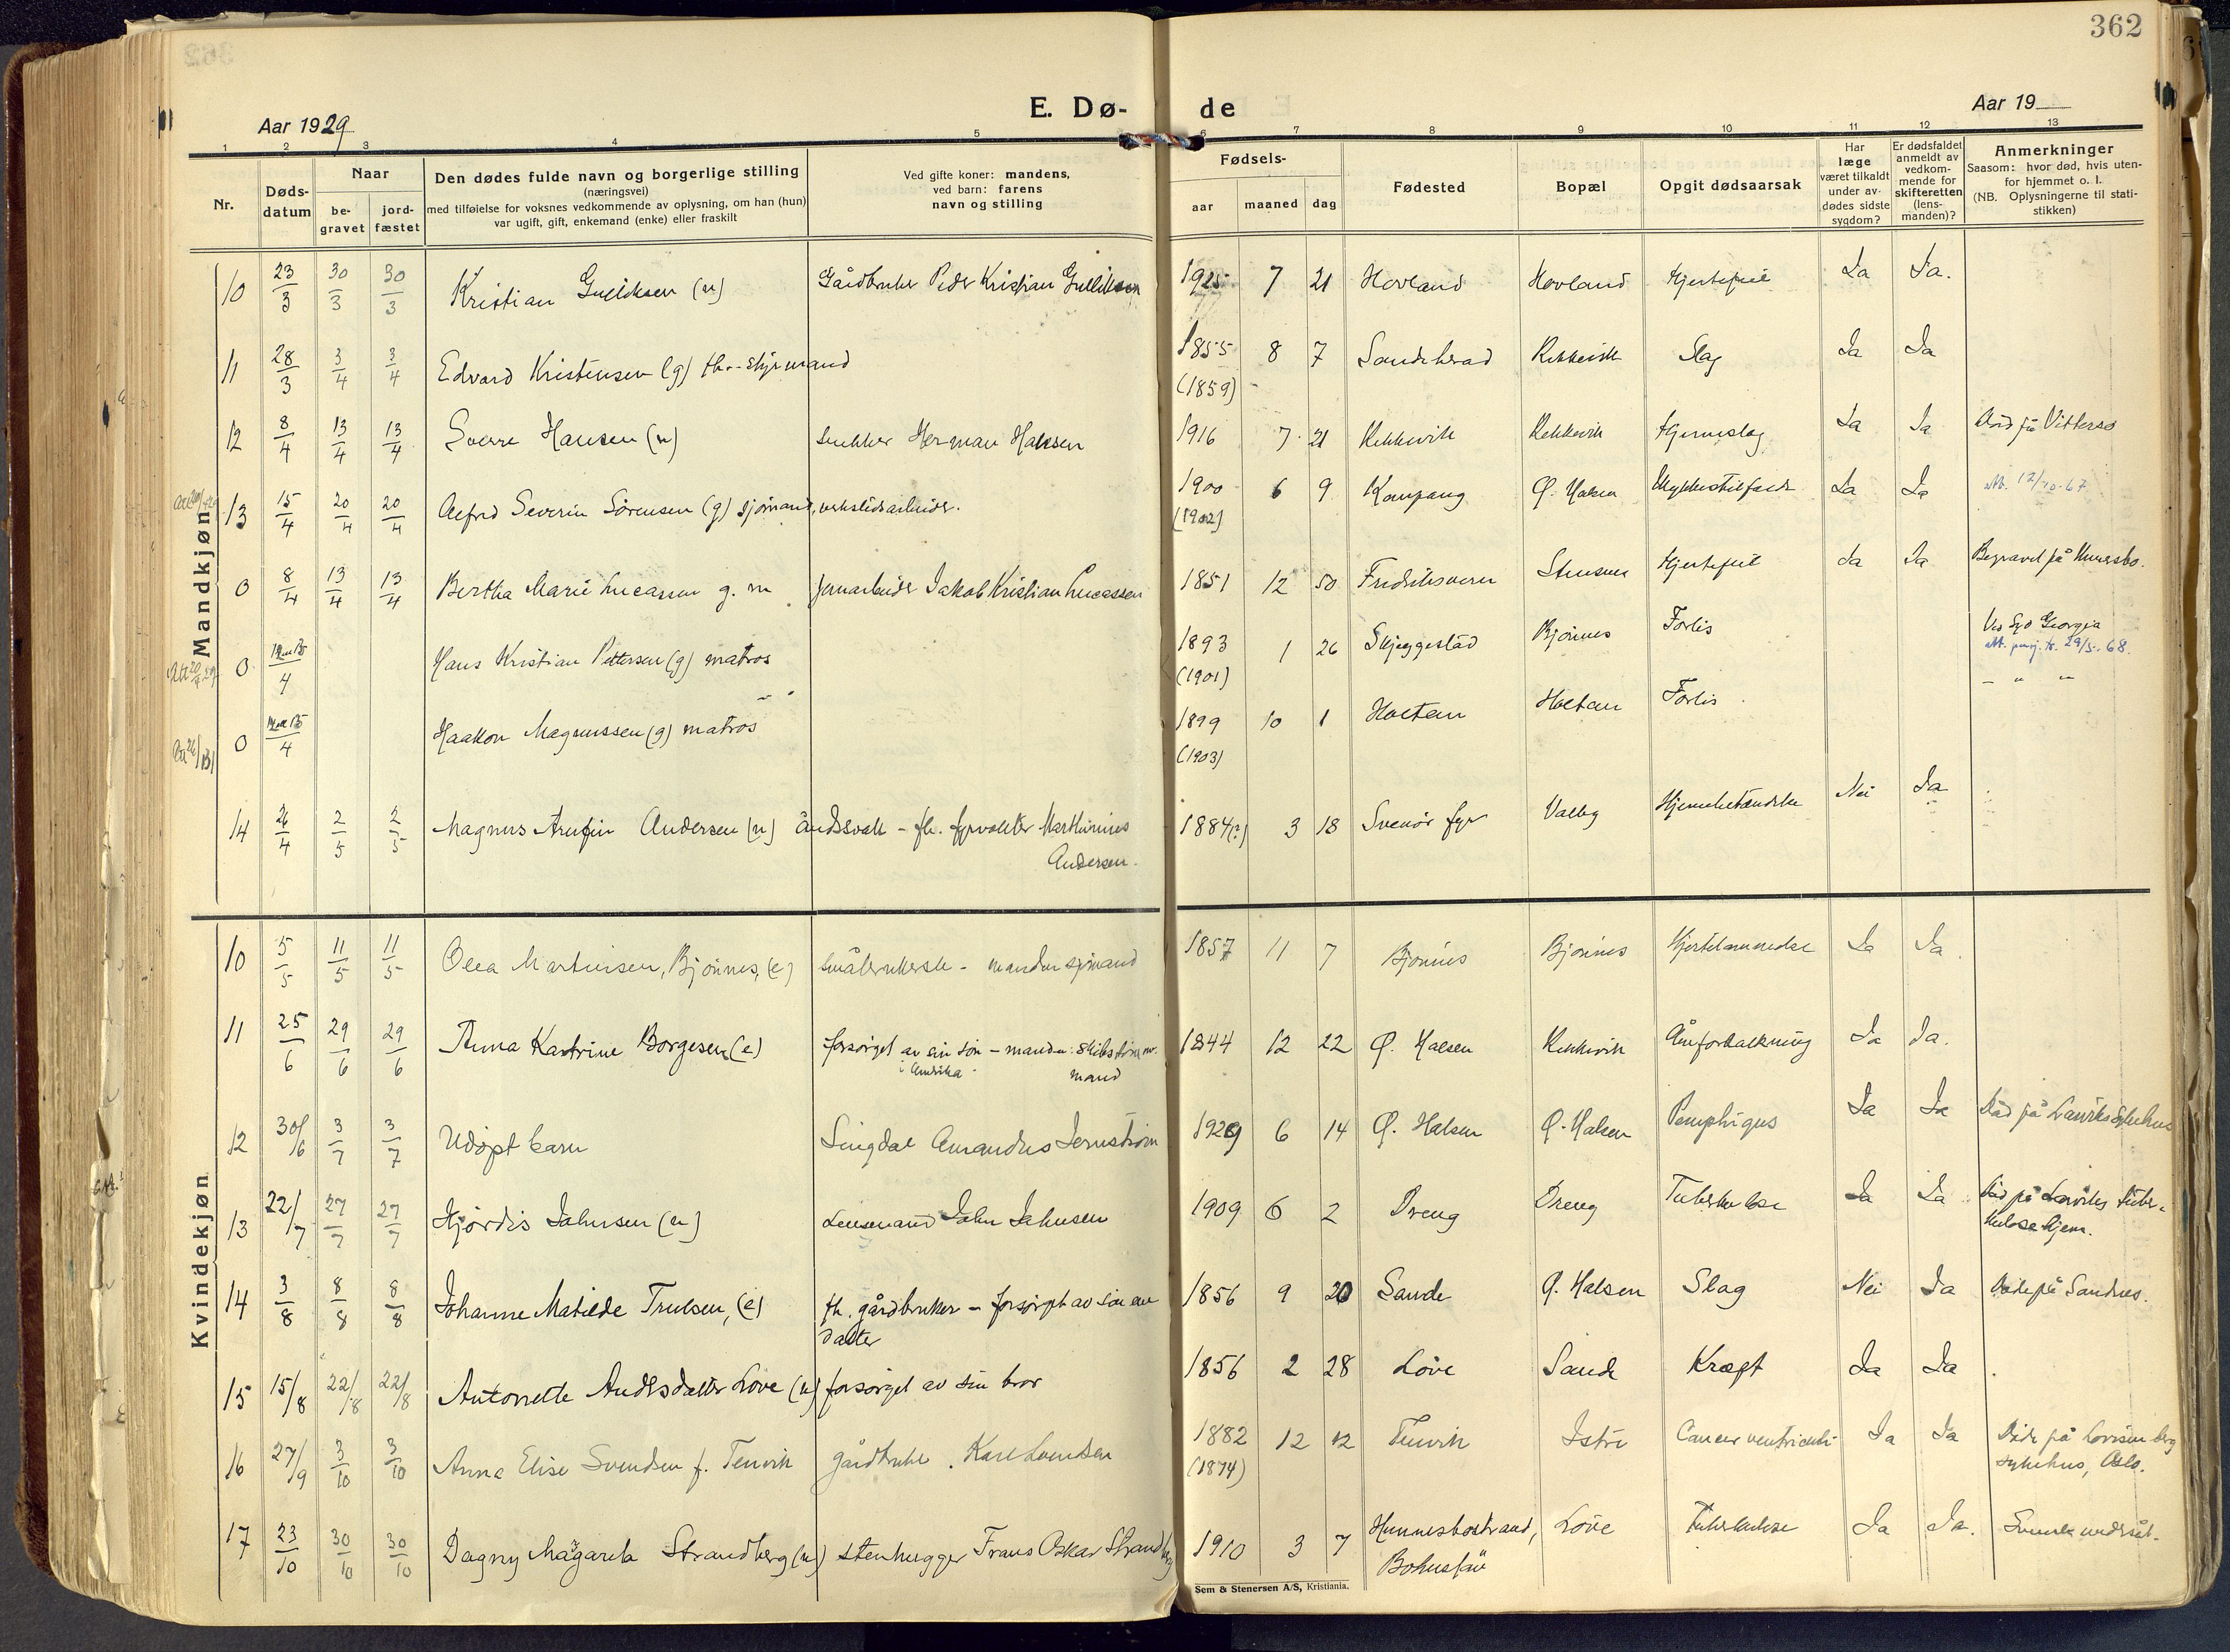 362
Aar 1929
E. Dø-
de
Aar 19
1 2 3 4 5 6 7 8 9 10 11 12 13
Nr.
Døds-
datum
Naar
be-
gravet
jord-
fæstet
Den dødes fulde navn og borgerlige stilling
(næringsvei)
med tilføielse for voksnes vedkommende av oplysning, om han (hun)
var ugift, gift, enkemand (enke) eller fraskilt
Ved gifte koner: mandens,
ved barn: farens
navn og stilling
Fødsels-
aar maaned dag
Fødested
Bopæl
Opgit dødsaarsak
Har
læge
været tilkaldt
under av-
dødes sidste
sygdom?
Er dødsfaldet
anmeldt av
vedkom-
mende for
skifteretten
(lens-
manden)?
Anmerkninger
Saasom: hvor død, hvis uten-
for hjemmet o. l.
(NB. Oplysningerne til stati-
stikken)
Mandkjøn
10 23/3 30/3 30/3 Kristian Gulliksen (u) Gårdbruker Peder Kristian Gulliksen 1925 7 21 Hovland Hovland Hjertefeil Ja Ja.
11 28/3 3/4 3/4 Edvard Kristensen (g) fh. styrmand 1855 8 7 Sandeherad Rekkevik Slag Ja Ja
(1859)
12 8/4 13/4 13/4 Sverre Hansen (u) Snekker Herman Hansen 1916 7 21 Rekkevik Rekkevik Hjerneslag Ja Ja Död på Vittersø
13 15/4 20/4 20/4 Alfred Severin Sørensen (g) sjömand, verkstedsarbeider. 1900 6 9 Kaupang Ø. Halsen Ulykkestilfælde Ja Ja att. 12/10-67
(1902)
0 8/4 13/4 13/4 Bertha Marie Lucassen g. m. jernarbeider Jakob Kristian Lucassen 1851 12 30 Fredriksvern Stensnes Hjertefeil Ja Ja Begravet på
0 4 Hans Kristian Pettersen (g) matros 1893 1 26 Skjeggestad Bjönnes Forlis Ved Syd Georgia
(1901) att. 29/5-68.
0 4 Haakon Magnussen (g) matros 1899 10 1 Holtan Holtan Forlis - " -
(1903)
14 26/4 2/5 2/5 Magnus Arnfin Andersen (u) åndssvak - fh. fyrvokter Marthinius 1884(?) 3 18 Svenör fyr Valby Hjernebetændelse Nei Ja
Andersen.
Kvindekjøn
10 5/5 11/5 11/5 Olea Martinsen, Bjönnes, (e) Småbrukerske - manden sjömand 1857 11 7 Bjönnes Bjönnes Hjertelammelse Ja Ja.
11 25/6 29/6 29/6 Anna Katrine Borgesen (e) forsörget av sin sön - manden: skibstömmer- 1844 12 22 Ø. Halsen Rekkevik Åreforkalkning Ja Ja.
i Amerika mand
12 30/6 3/7 3/7 Udöpt barn Lingdal Amandus Jernström 1929 6 14 Ø. Halsen Ø. Halsen Pemphigus Ja Ja Död på Larviks sykehus
13 22/7 27/7 27/7 Hjördis Johnsen (u) Lensmand John Johnsen 1909 6 2 Dreng Dreng Tuberkulose Ja Ja Död på Larviks tuber-
kulosehjem.
14 3/8 8/8 8/8 Johanne Matilde Trulsen, (e) fh. gårdbruker - forsörget av sin ene 1856 9 20 Sande Ø. Halsen Slag Nei Ja Döde på Sandnes.
datter
15 15/8 22/8 22/8 Antonette Andersdatter Löve (u) forsörget av sin bror 1856 2 28 Löve Sande Kræft Ja Ja
16 27/9 3/10 3/10 Anna Elise Svendsen f. Tenvik gårdbruker Karl Svendsen 1882 12 12 Tenvik Istre Cancer ventriculi Ja Ja Döde på Lovisenberg
(1874) sykehus, Oslo.
17 23/10 30/10 30/10 Dagny Margareta Strandberg (u) stenhugger Frans Oskar Strandberg 1910 3 7 Hunnebostrand, Löve Tuberkulose Ja Ja. Svensk undersåt.
Bohuslän
Sem & Stenersen A/S, Kristiania.